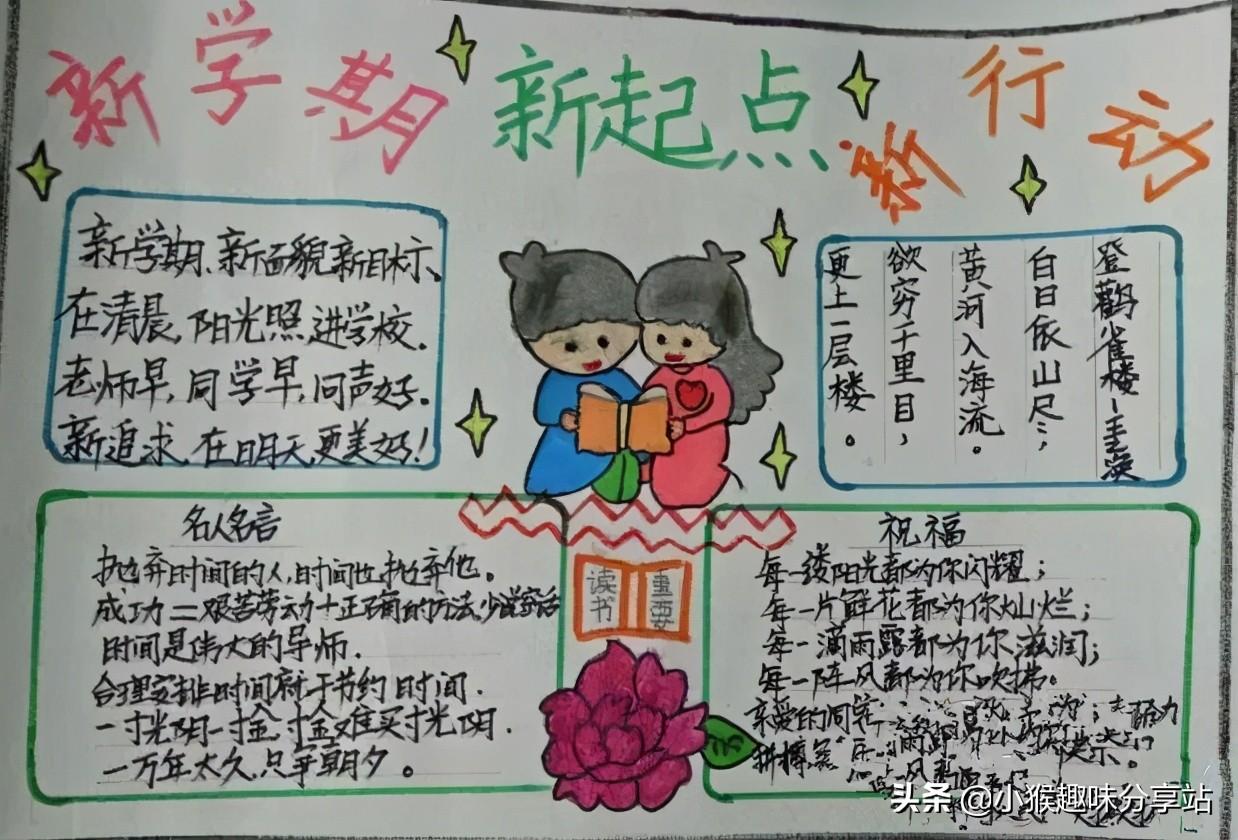 新学期 新起点 新行动
新学期、新面貌新目标、
在清晨,阳光照,进学校.
老师早,同学早,问声好.
新追求,在明天,更美好!
登鹳雀楼-王涣
白日依山尽;
黄河入海流。
欲穷千里目,
更上一层楼。
名人名言
抛弃时间的人,时间也抛弃他。
成功二艰苦劳动十正确的方法,少说空话
时间是伟大的导师.
合理安排时间就于节约时间.
一寸光阴一寸金,寸金难买寸光阴.
一万年太久,只争朝夕。
读书
重要
祝福
每一缕阳光都为你闪耀;
每一片鲜花都为你灿烂;
每一滴雨露都为你滋润;
每一阵风都为你吹拂。
亲爱的同学
拼搏
头条 @小猴趣味分享站